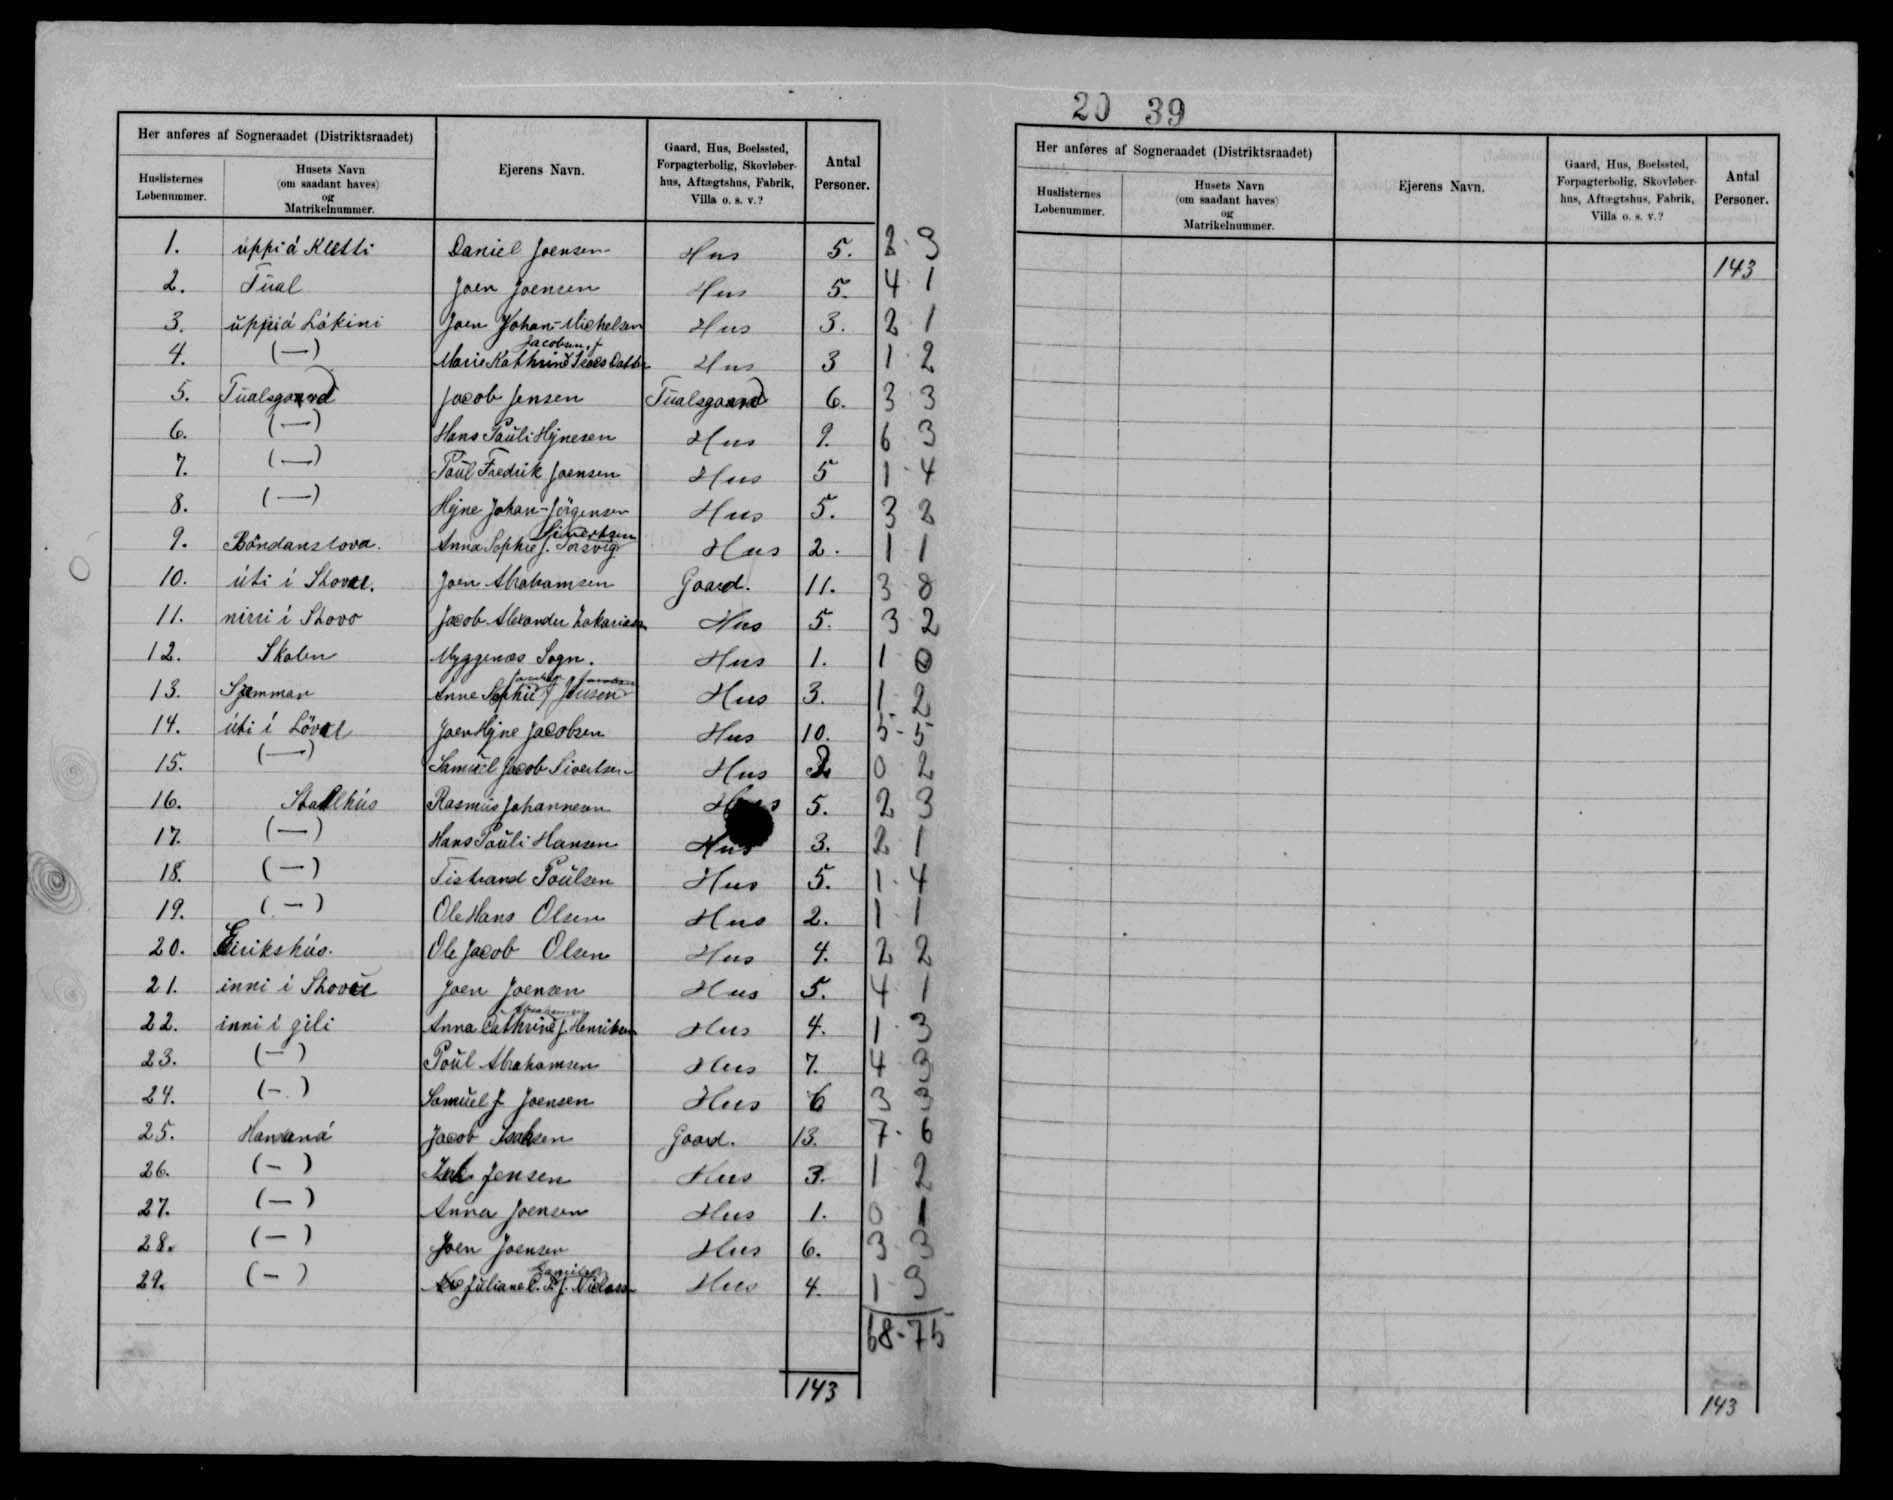 20 39
Her anføres af Sogneraadet (Distriktsraadet)
Huslisternes Løbenummer.
Husets Navn (om saadant haves) og Matrikelnummer.
Ejerens Navn.
Gaard, Hus, Boelssted, Forpagterbolig, Skovløberhus, Aftægtshus, Fabrik, Villa o. s. v.?
Antal Personer.
1. uppi á Kletti Daniel Joensen Hus 5. 2 3
2. Tual Joen Joensen Hus 5. 4 1
3. uppi á Lákini Joen Johan-Michelsen Hus 3. 2 1
Jacobsen, f
4. (—) Marie Kathrine Hus 3 1 2
5. Tualsgaard Jacob Jensen Tualsgaard 6. 3 3
6. (—) Hans Pauli Hejnesen Hus 9. 6 3
7. (—) Poul Fredrik Joensen Hus 5 1 4
8. (—) Hejne Johan-Jörgensen Hus 5. 3 2
Sivertsen
9. Böndanstova. Anna Sophie f. Torsvig Hus 2. 1 1
10. úti í Stovu. Joen Abrahamsen Gaard. 11. 3 8
11. nirri í Stovo Jacob Alexander Zakariasen Hus 5. 3 2
12. Skolen Myggenæs Sogn. Hus 1. 1 0
13. Anne Sophie f Jensen Hus 3. 1 2
14. úti í Joen Hejne Jacobsen Hus 10. 5-5
15. (—) Samuel Jacob Sivertsen Hus 2 0 2
16. Rasmus Johannesen Hus 5. 2 3
17. (—) Hans Pauli Hansen Hus 3. 2 1
18. (—) Tistrand Poulsen Hus 5. 1 4
19. (—) Ole Hans Olsen Hus 2. 1 1
20. Eirikshús. Ole Jacob Olsen Hus 4. 2 2
21. inni í Stovu Joen Joensen Hus 5. 4 1
22. inni í gili Anna Cathrine f. Henriksen Hus 4. 1 3
23. (—) Poul Abrahamsen Hus 7. 4 3
24. (—) Samuel J Joensen Hus 6 3 3
25. Jacob Isaksen Gaard. 13. 7-6
26. (—) Jensen Hus 3. 1 2
27. (—) Anna Joensen Hus 1. 0 1
28. (—) Joen Joensen Hus 6. 3 3
29. (—) Juliane Hus 4. 1 3
68-75
143
Her anføres af Sogneraadet (Distriktsraadet)
Huslisternes Løbenummer.
Husets Navn (om saadant haves) og Matrikelnummer.
Ejerens Navn.
Gaard, Hus, Boelssted, Forpagterbolig, Skovløberhus, Aftægtshus, Fabrik, Villa o. s. v.?
Antal Personer.
143
143